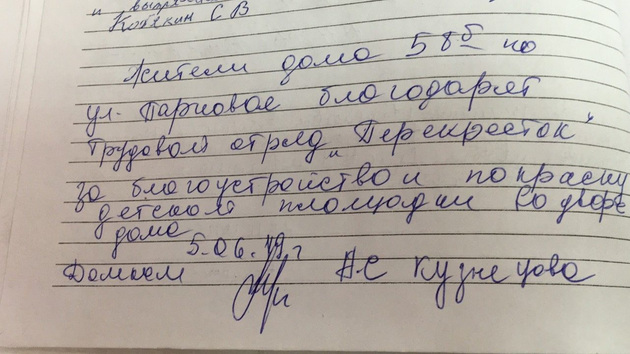 и
Козякин С В
Жители дома 58б по
ул. Парковое благодарят
трудовой отряд "Перекресток"
за благоустройство и покраску
детской площадки во дворе
дома
5.06.19 г
Домком
АС Кузнецова